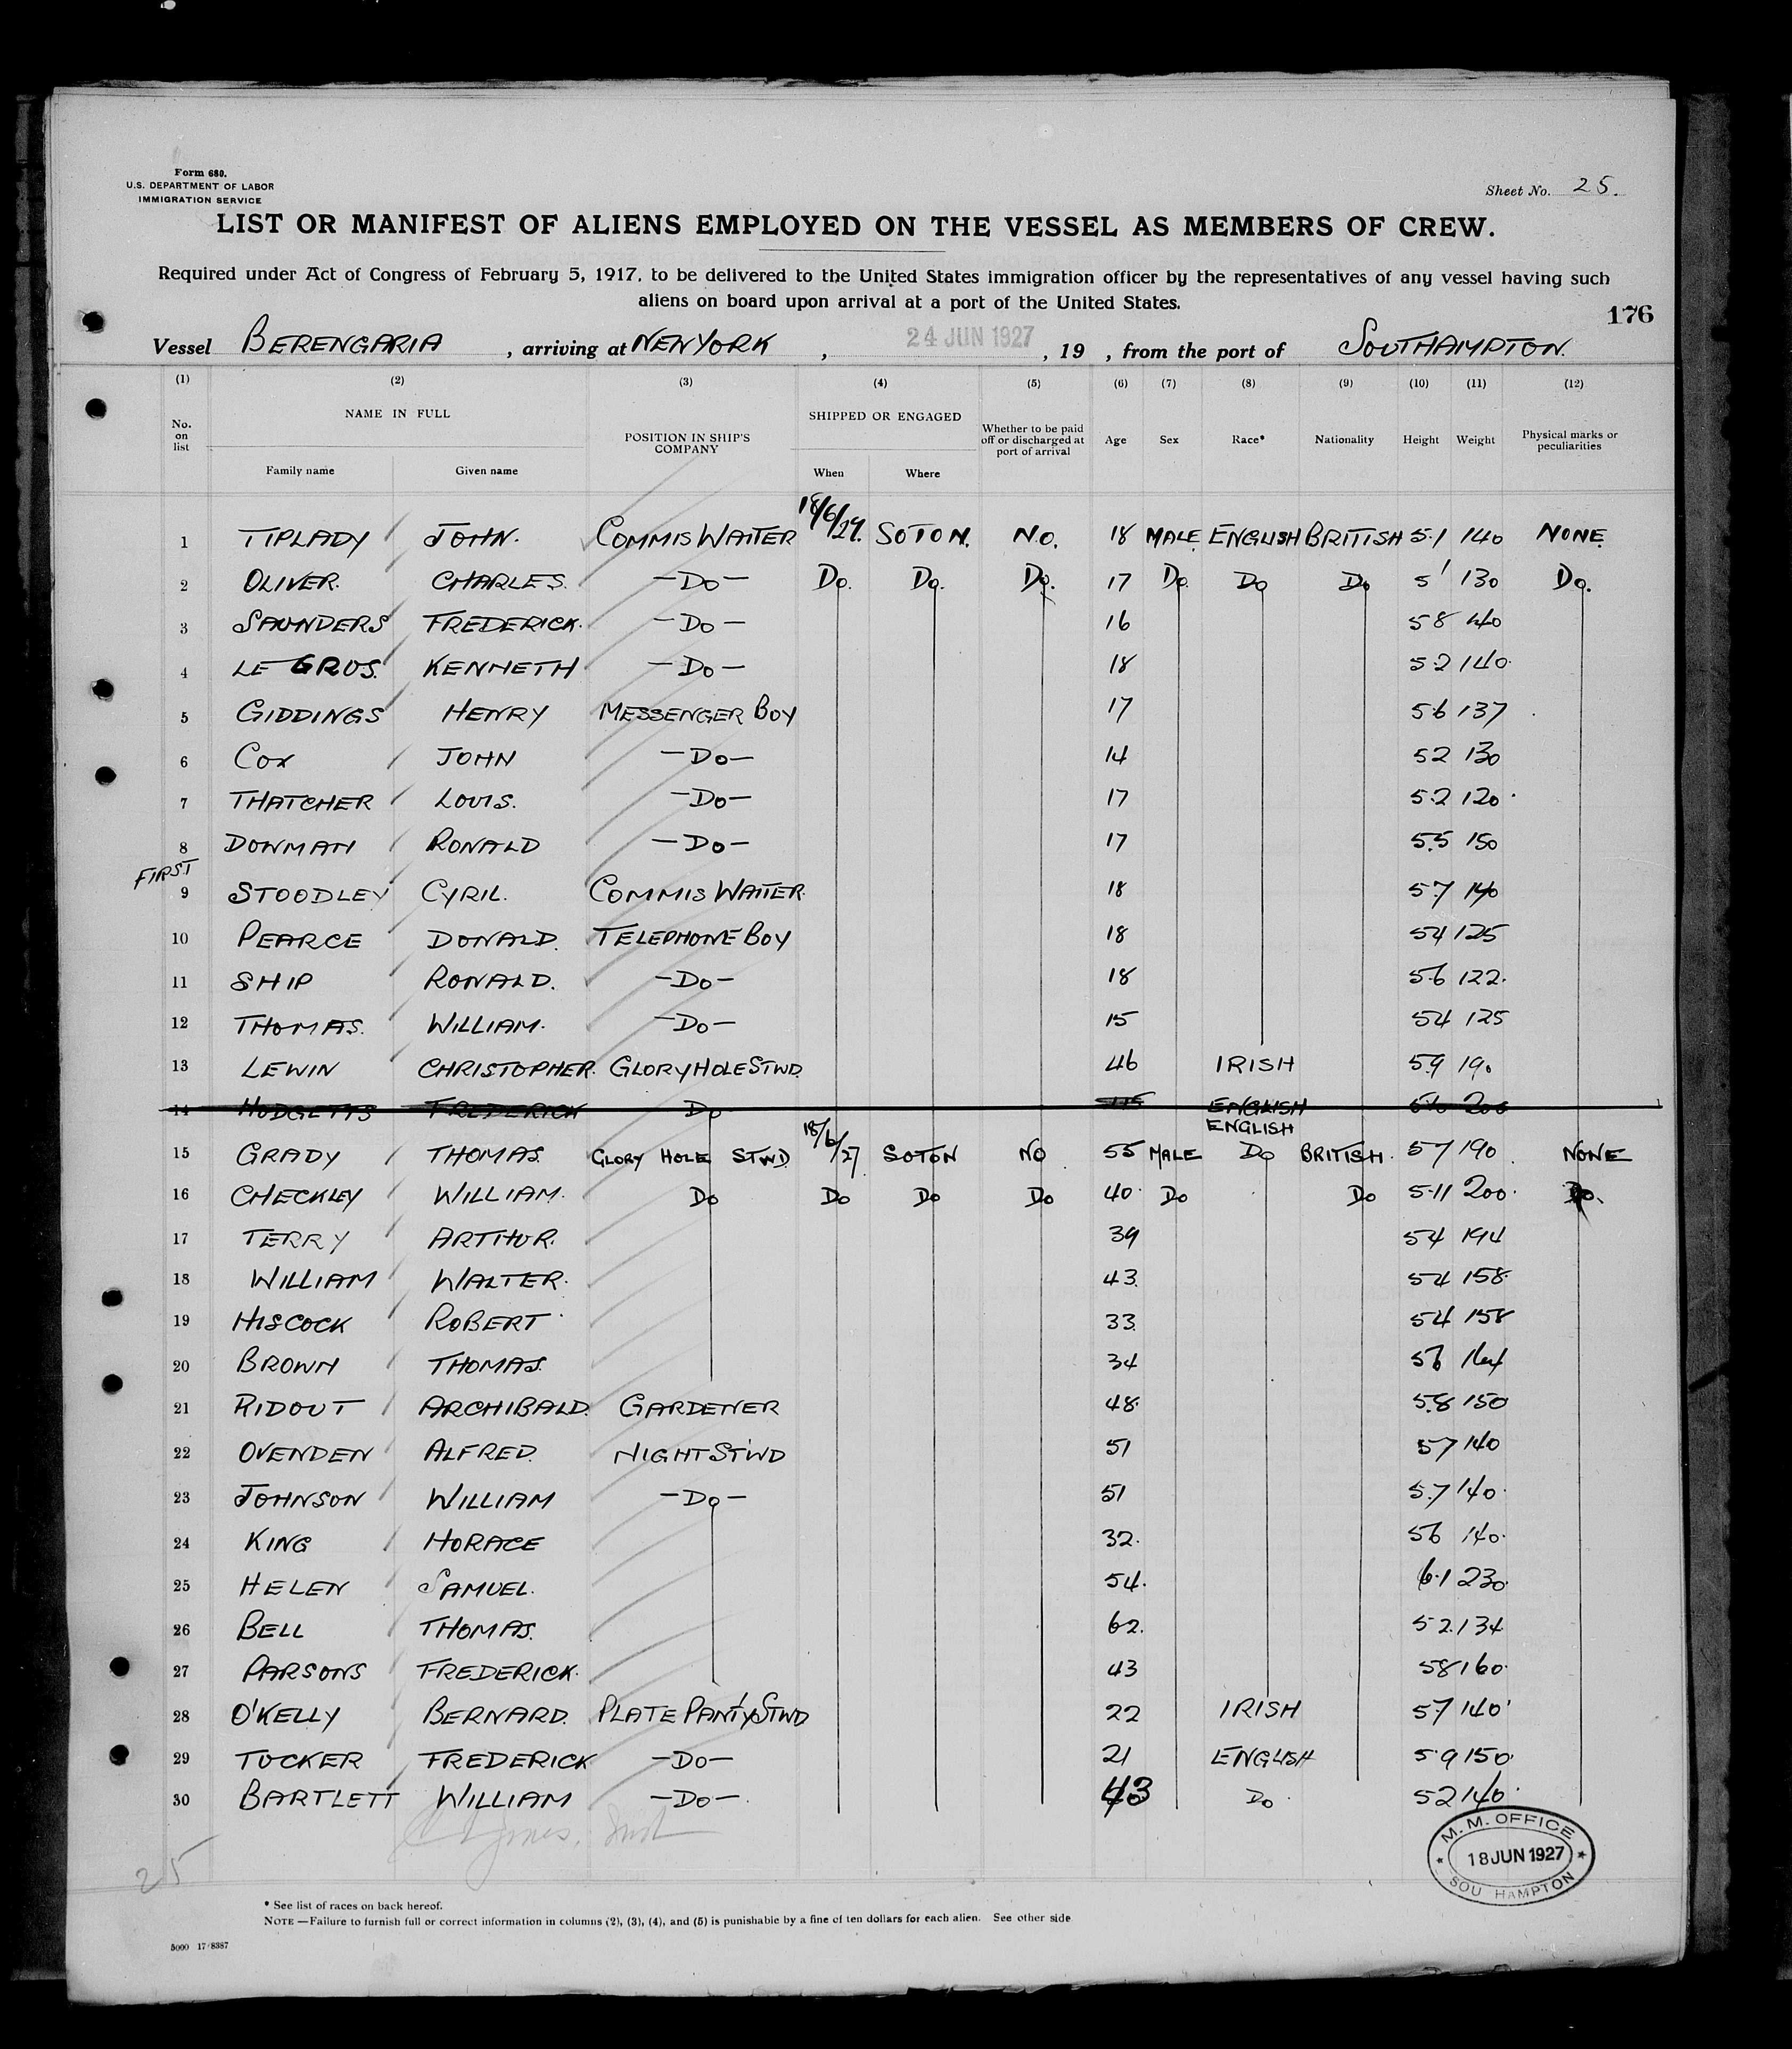 Form 680.
U.S. DEPARTMENT OF LABOR
IMMIGRATION SERVICE
Sheet No. 25.
LIST OR MANIFEST OF ALIENS EMPLOYED ON THE VESSEL AS MEMBERS OF CREW.
Required under Act of Congress of February 5, 1917, to be delivered to the United States immigration officer by the representatives of any vessel having such
aliens on board upon arrival at a port of the United States.
176
Vessel BERENGARIA, arriving at NEW YORK, 24 JUN 1927, 19 , from the port of SOUTHAMPTON.
(1) (2) (3) (4) (5) (6) (7) (8) (9) (10) (11) (12)
No. on list NAME IN FULL Family name Given name POSITION IN SHIP'S COMPANY SHIPPED OR ENGAGED When Where Whether to be paid off or discharged at port of arrival Age Sex Race* Nationality Height Weight Physical marks or peculiarities
1 TIPLADY JOHN. COMMIS WAITER 18/6/27. SOTON. NO. 18 MALE. ENGLISH BRITISH 5·1 140 NONE.
2 OLIVER. CHARLES. —DO— DO. DO. DO. 17 DO. DO DO 5' 130 DO.
3 SAUNDERS FREDERICK. —DO— 16 58
4 LE GROS. KENNETH —DO— 18 5·2 140.
5 GIDDINGS HENRY MESSENGER BOY 17 5·6 137
6 COX JOHN —DO— 14 52 130
7 THATCHER LOUIS. —DO— 17 5·2 120
8 DOWMAN RONALD —DO— 17 5.5 150
FIRST
9 STOODLEY CYRIL. COMMIS WAITER. 18 5·7 140
10 PEARCE DONALD. TELEPHONE BOY 18 54 125
11 SHIP RONALD. —DO— 18 5·6 122.
12 THOMAS. WILLIAM. —DO— 15 54 125
13 LEWIN CHRISTOPHER. GLORY HOLE STWD. 46 IRISH 5.9 190
14 HODGETTS FREDERICK DO ENGLISH 200
ENGLISH
15 GRADY THOMAS. GLORY HOLE STWD. 18/6/27 SOTON NO. 55 MALE DO BRITISH. 57 190. NONE
16 CHECKLEY WILLIAM. DO DO DO DO 40. DO DO 5·11 200. DO.
17 TERRY ARTHUR. 39 54 194
18 WILLIAM WALTER. 43. 54 158.
19 HISCOCK ROBERT 33. 54 158
20 BROWN THOMAS. 34 56 164
21 RIDOUT ARCHIBALD. GARDENER 48. 5.8 150
22 OVENDEN ALFRED. NIGHT STWD 51 57 140
23 JOHNSON WILLIAM —DO— 51 5.7 140.
24 KING HORACE 32. 56 140.
25 HELEN SAMUEL. 54. 6·1 230.
26 BELL THOMAS. 62. 52. 134
27 PARSONS FREDERICK. 43 58 160.
28 O'KELLY BERNARD. PLATE PANTY STWD 22 IRISH 57 140
29 TUCKER FREDERICK —DO— 21 ENGLISH 5·9 150.
30 BARTLETT WILLIAM —DO—. 43 DO. 52 140.
25
M. M. OFFICE
18 JUN 1927
SOU HAMPTON
* See list of races on back hereof.
NOTE —Failure to furnish full or correct information in columns (2), (3), (4), and (5) is punishable by a fine of ten dollars for each alien. See other side
5000 17/8387